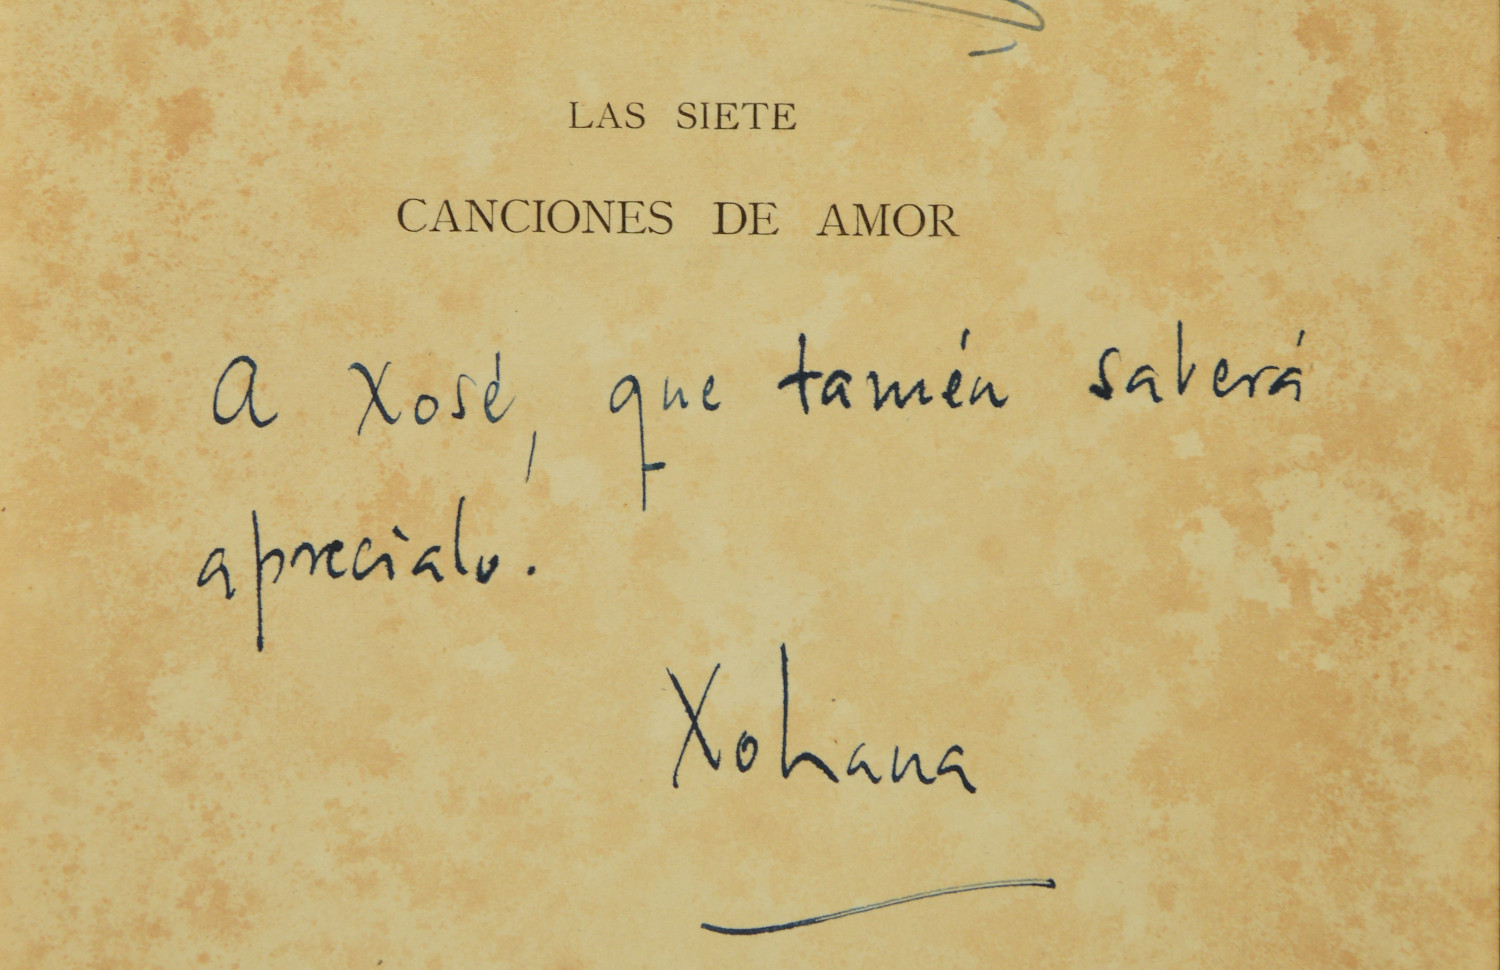 LAS SIETE
CANCIONES DE AMOR
A Xosé, que tamén saberá
aprecialo.
Xohana